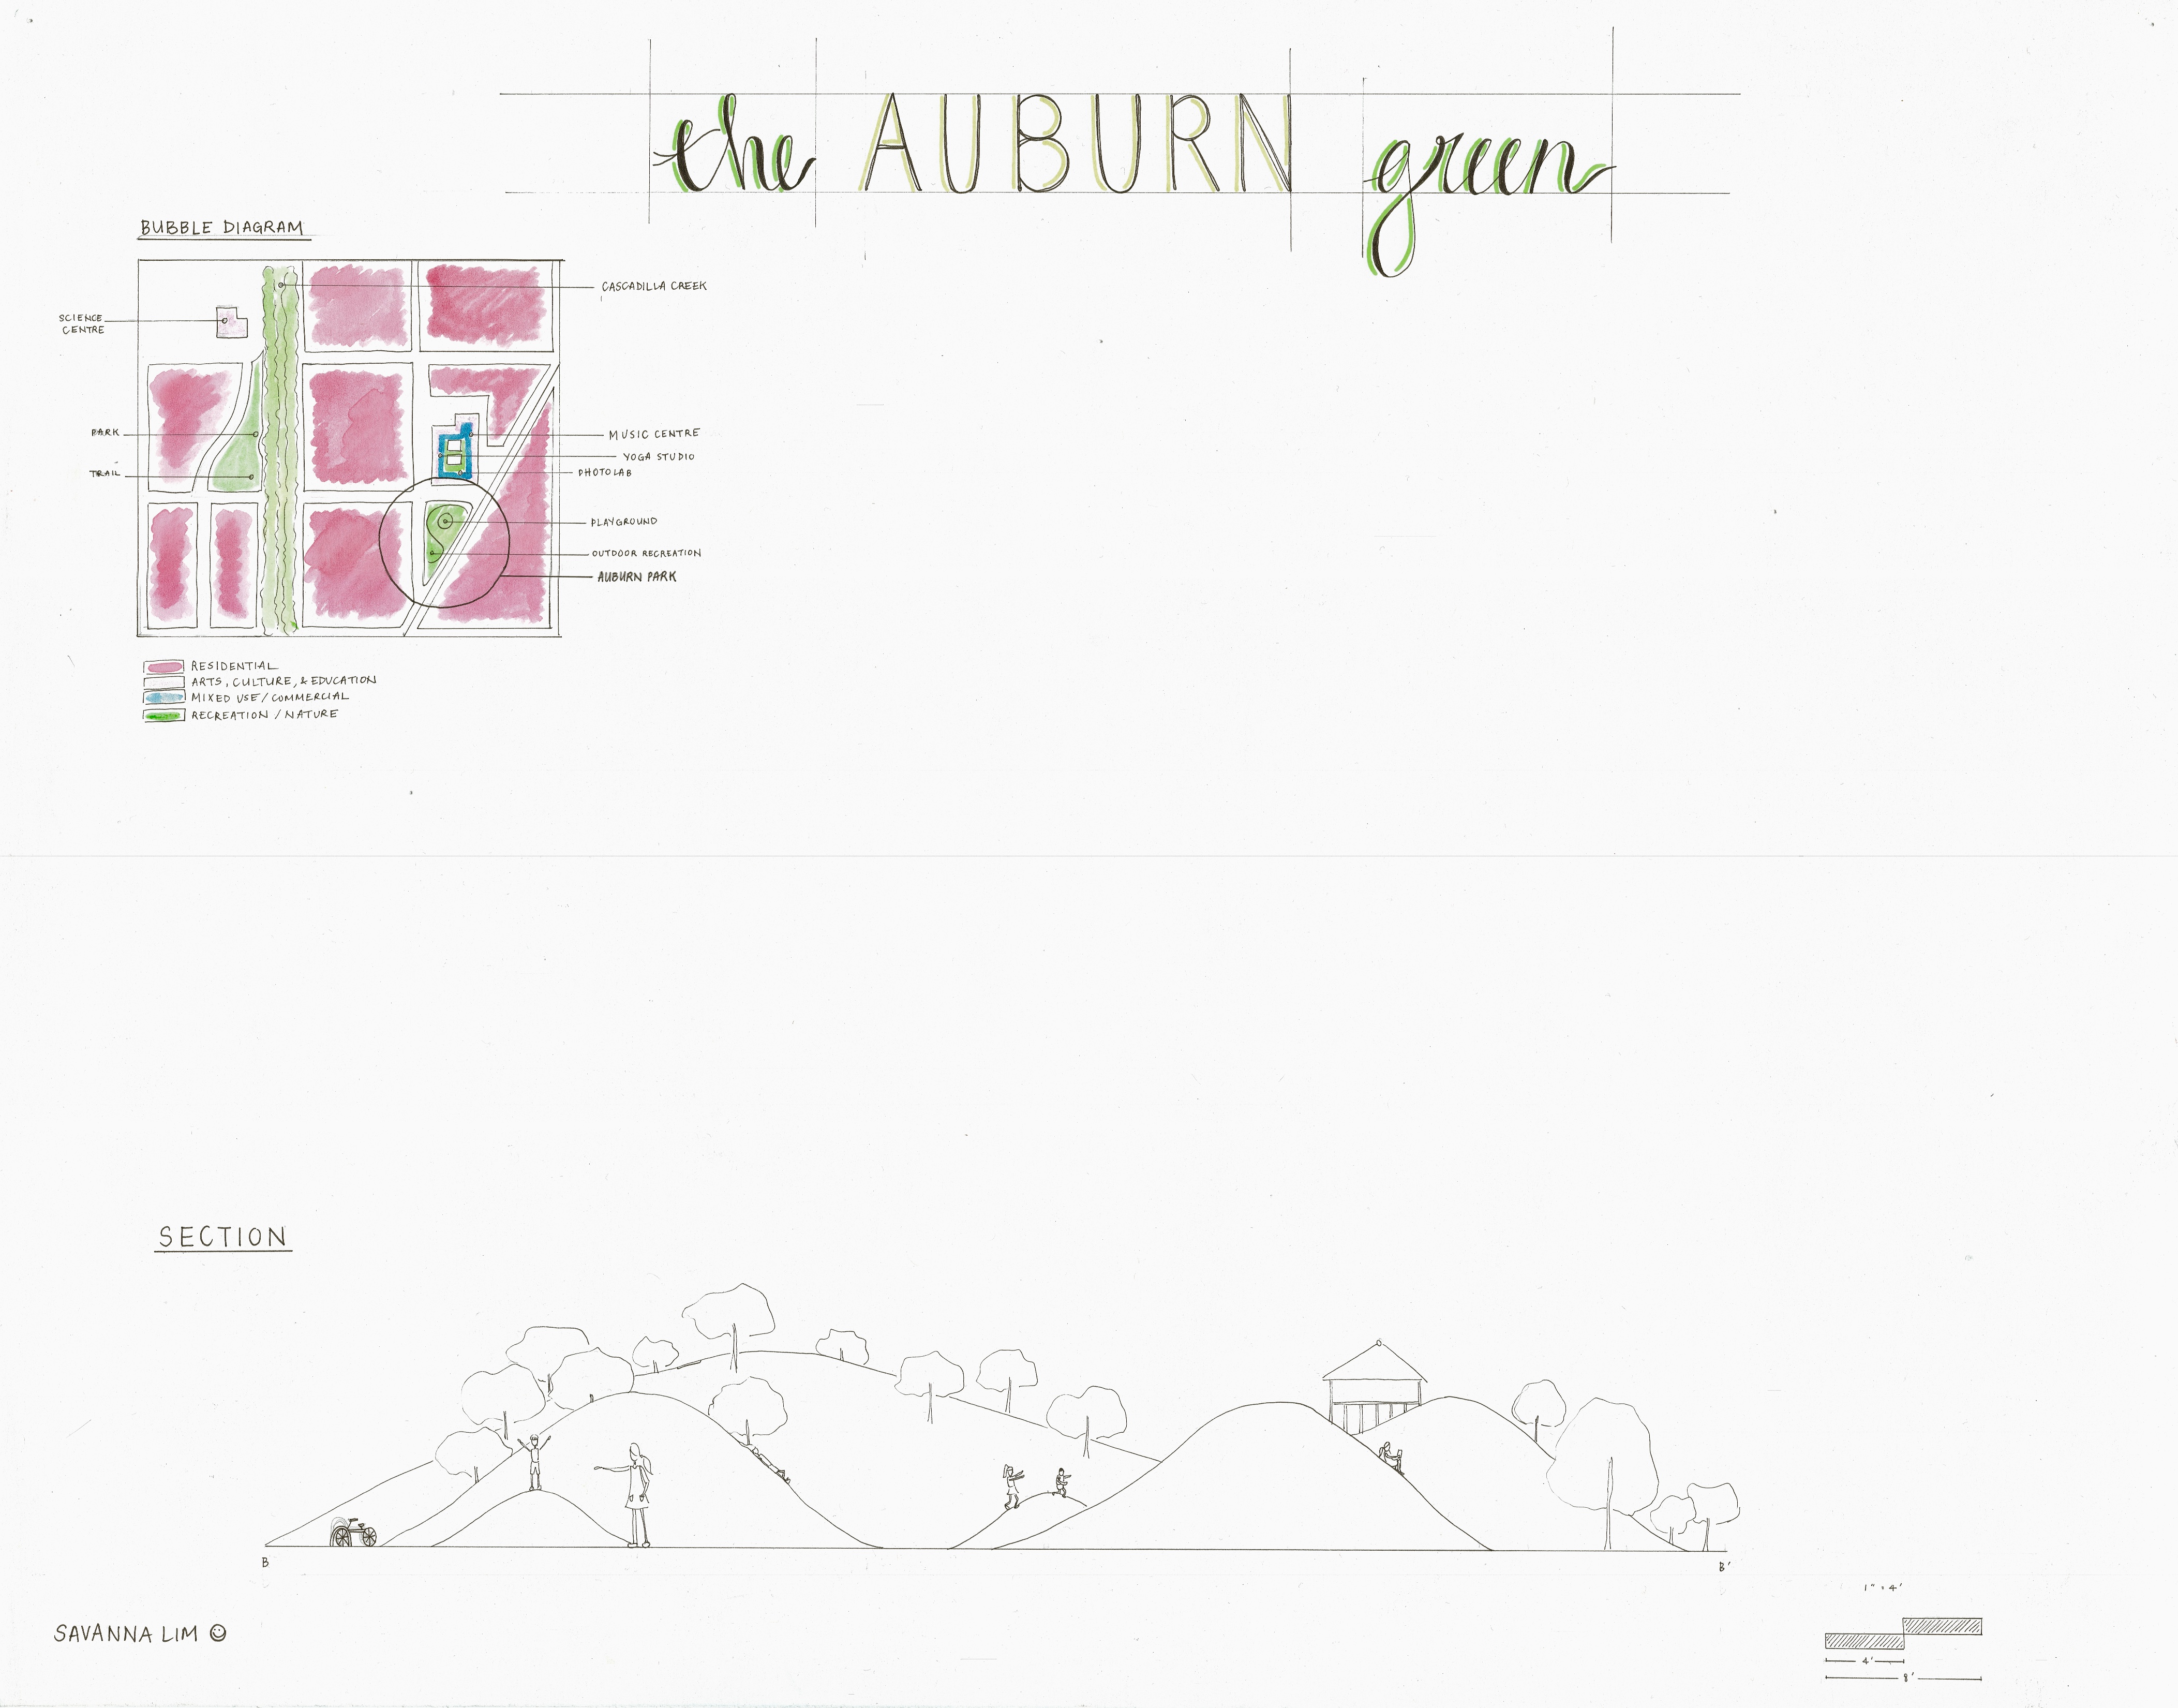 the AUBURN green
BUBBLE DIAGRAM
CASCADILLA CREEK
SCIENCE
CENTRE
PARK
TRAIL
MUSIC CENTRE
YOGA STUDIO
PHOTOLAB
PLAYGROUND
OUTDOOR RECREATION
AUBURN PARK
RESIDENTIAL
ARTS, CULTURE, & EDUCATION
MIXED USE / COMMERCIAL
RECREATION / NATURE
SECTION
B
B'
1" = 4'
4'
8'
SAVANNA LIM